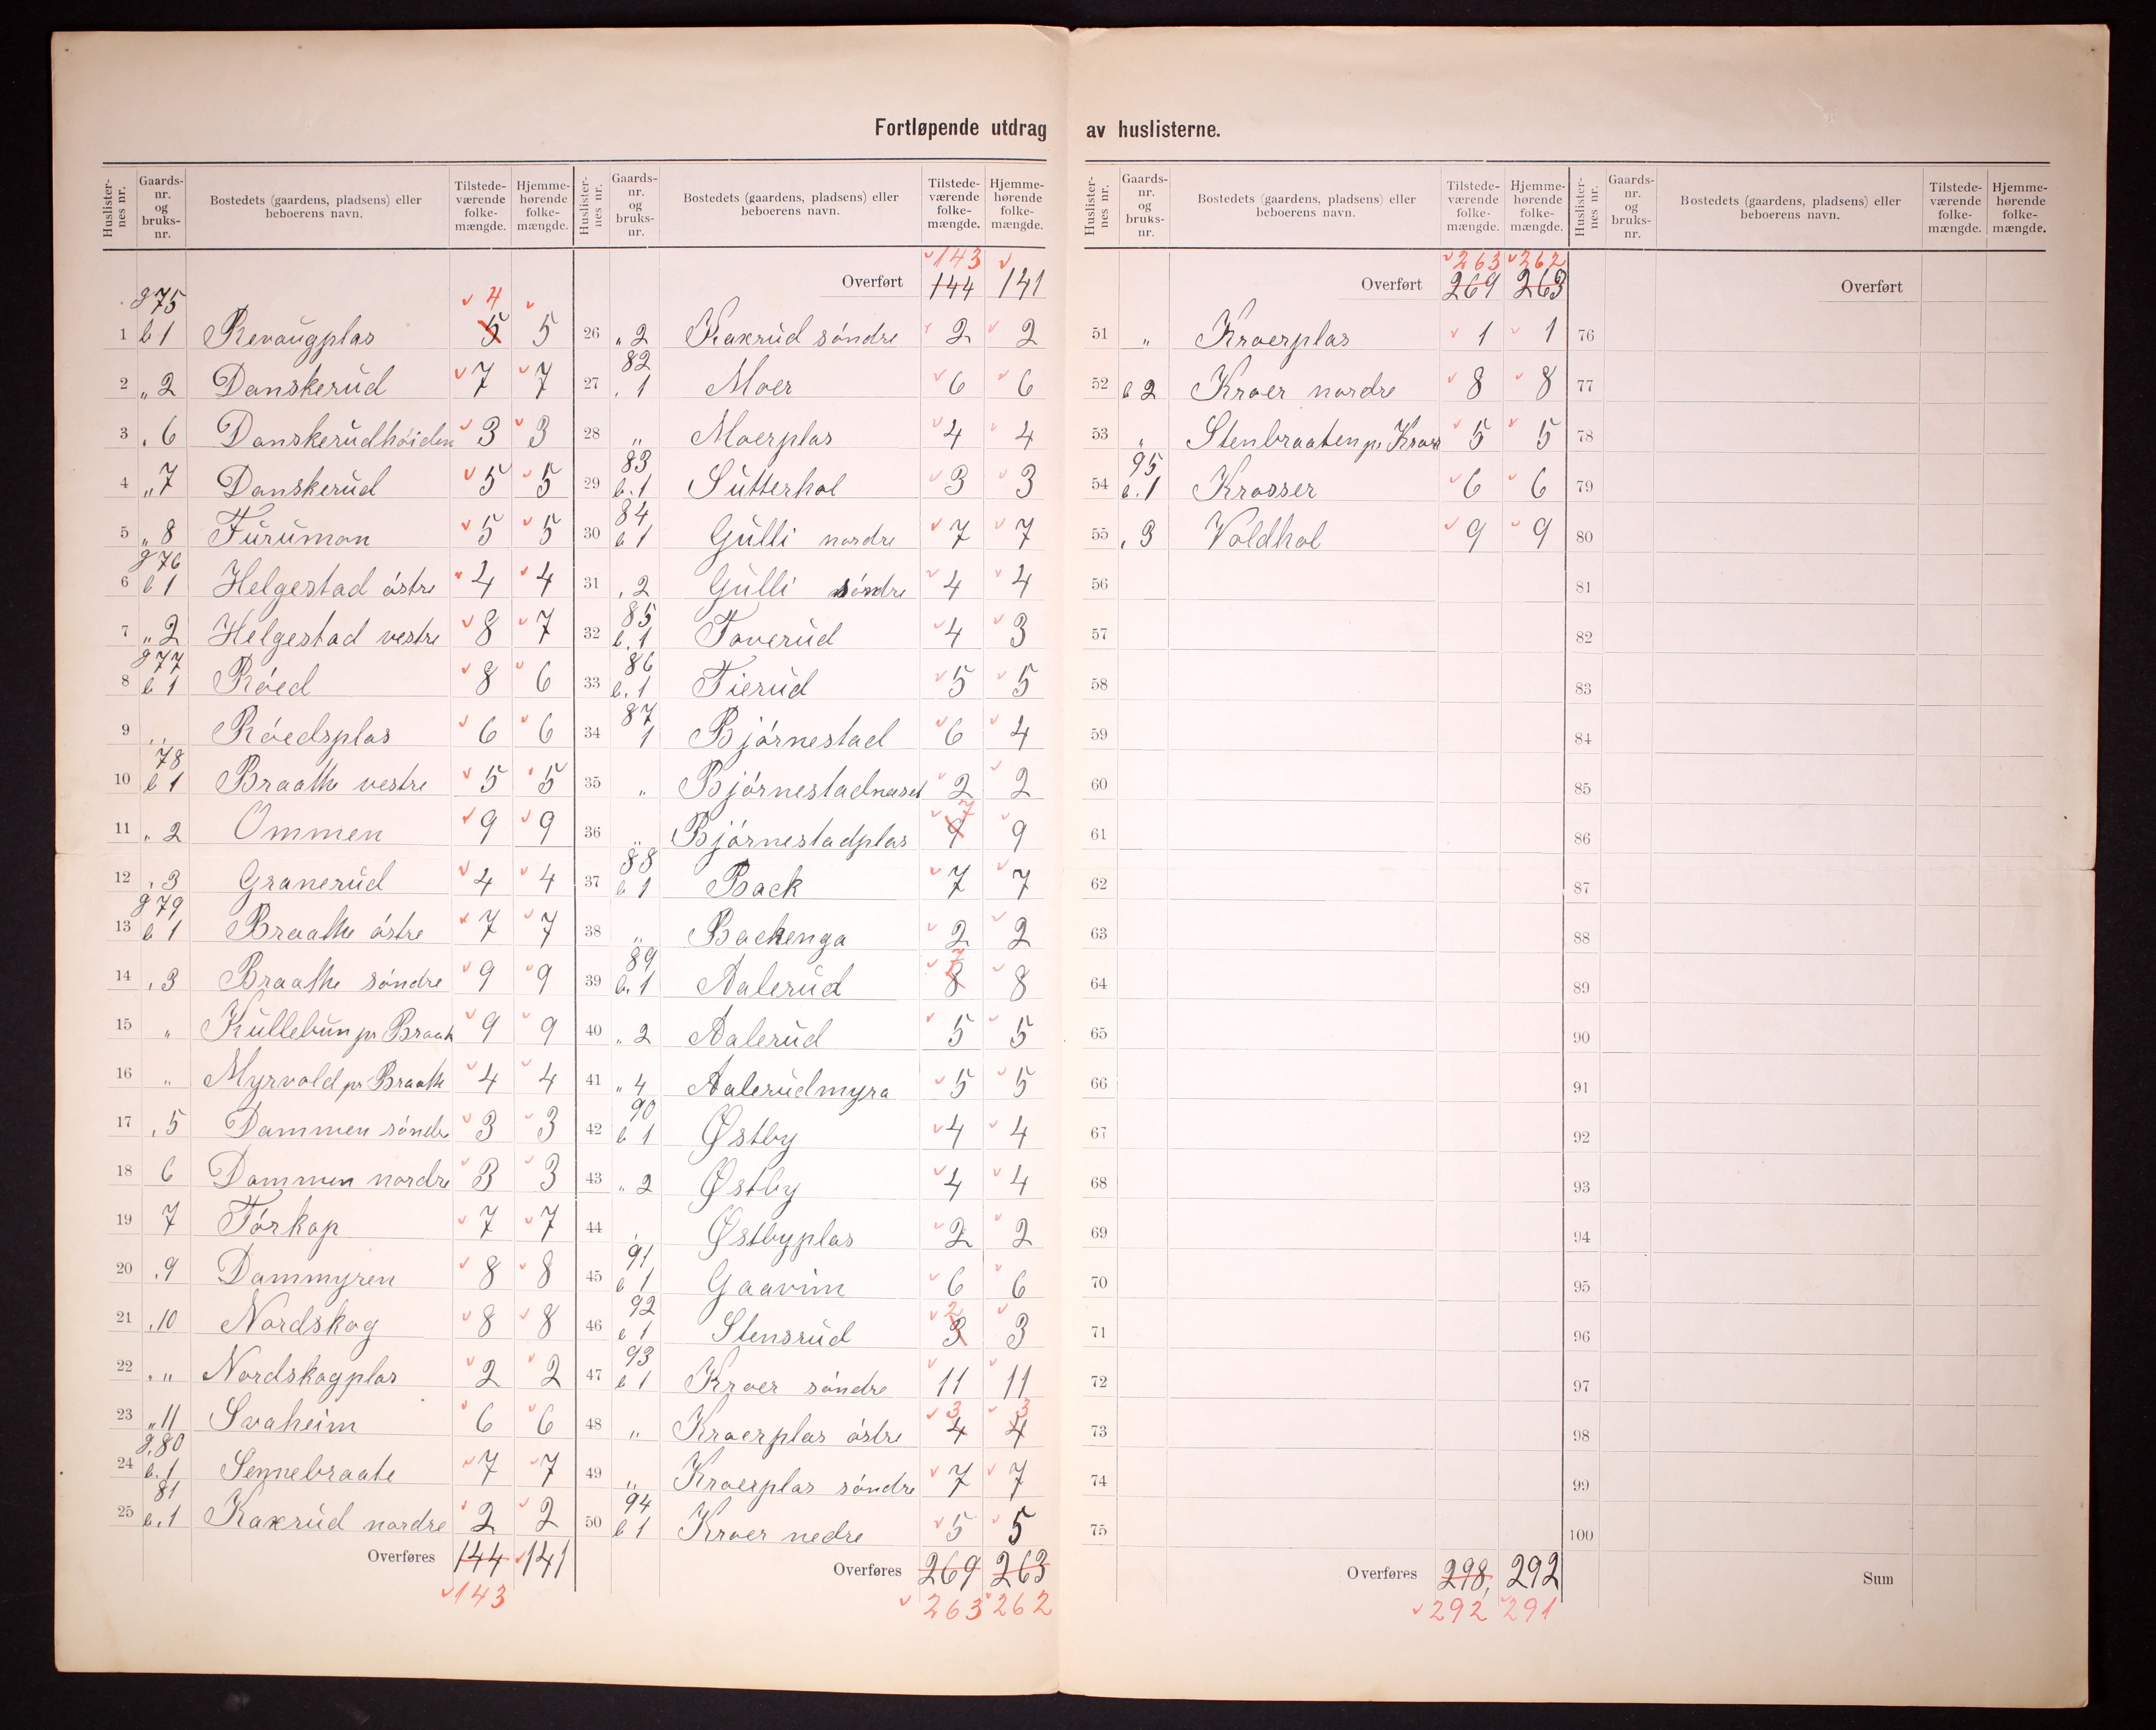 Fortløpende utdrag av huslisterne.
Huslisternes nr. Gaards-nr. og bruks-nr. Bostedets (gaardens, pladsens) eller beboerens navn. Tilstedeværende folkemængde. Hjemmehørende folkemængde.
g 75 4
1 b 1 Revaugplas 5 5
2 „ 2 Danskerud 7 7
3 „ 6 Danskerudhøiden 3 3
4 „ 7 Danskerud 5 5
5 „ 8 Furumon 5 5
g 76
6 b 1 Helgestad østre 4 4
7 „ 2 Helgestad vestre 8 7
g 77
8 b 1 Røed 8 6
9 „ Røedsplas 6 6
78
10 b 1 Braathe vestre 5 5
11 „ 2 Ommen 9 9
12 „ 3 Granerud 4 4
g 79
13 b 1 Braathe østre 7 7
14 „ 3 Braathe søndre 9 9
15 „ Kullebun pr Braat 9 9
16 „ Myrvold pr Braathe 4 4
17 „ 5 Dammen søndr 3 3
18 6 Dammen nordre 3 3
19 7 Tørkop 7 7
20 „ 9 Dammyren 8 8
21 „ 10 Nordskog 8 8
22 „ „ Nordskogplas 2 2
23 „ 11 Svaheim 6 6
g. 80
24 b. 1 Sennebraate 7 7
81
25 b. 1 Kaxrud nordre 2 2
Overføres 144 141
143
Huslisternes nr. Gaards-nr. og bruks-nr. Bostedets (gaardens, pladsens) eller beboerens navn. Tilstedeværende folkemængde. Hjemmehørende folkemængde.
143
Overført 144 141
26 „ 2 Kaxrud søndre 2 2
82
27 „ 1 Moer 6 6
28 „ Moerplas 4 4
83
29 b. 1 Sutterhol 3 3
84
30 b 1 Gulli nordre 7 7
31 „ 2 Gulli søndre 4 4
85
32 b. 1 Toverud 4 3
86
33 b. 1 Fierud 5 5
87
34 1 Bjørnestad 6 4
35 „ Bjørnestadneset 2 2
7
36 „ Bjørnestadplas 9 9
88
37 b 1 Back 7 7
38 „ Backenga 2 2
89 7
39 b. 1 Aalerud 8 8
40 „ 2 Aalerud 5 5
41 „ 4 Aalerudmyra 5 5
90
42 b 1 Østby 4 4
43 „ 2 Østby 4 4
44 „ Østbyplas 2 2
91
45 b 1 Gaavim 6 6
92 2
46 b 1 Stensrud 3 3
93
47 b 1 Kroer søndre 11 11
3 3
48 „ Kroerplas østre 4 4
49 „ Kroerplas søndre 7 7
94
50 b 1 Kroer nedre 5 5
Overføres 269 263
263 262
Huslisternes nr. Gaards-nr. og bruks-nr. Bostedets (gaardens, pladsens) eller beboerens navn. Tilstedeværende folkemængde. Hjemmehørende folkemængde.
263 262
Overført 269 263
51 „ Kroerplas 1 1
52 b 2 Kroer nordre 8 8
53 „ Stenbraaten pr Kroer 5 5
95
54 b. 1 Krosser 6 6
55 „ 3 Voldhol 9 9
56
57
58
59
60
61
62
63
64
65
66
67
68
69
70
71
72
73
74
75
Overføres 298 292
292 291
Huslisternes nr. Gaards-nr. og bruks-nr. Bostedets (gaardens, pladsens) eller beboerens navn. Tilstedeværende folkemængde. Hjemmehørende folkemængde.
Overført
76
77
78
79
80
81
82
83
84
85
86
87
88
89
90
91
92
93
94
95
96
97
98
99
100
Sum